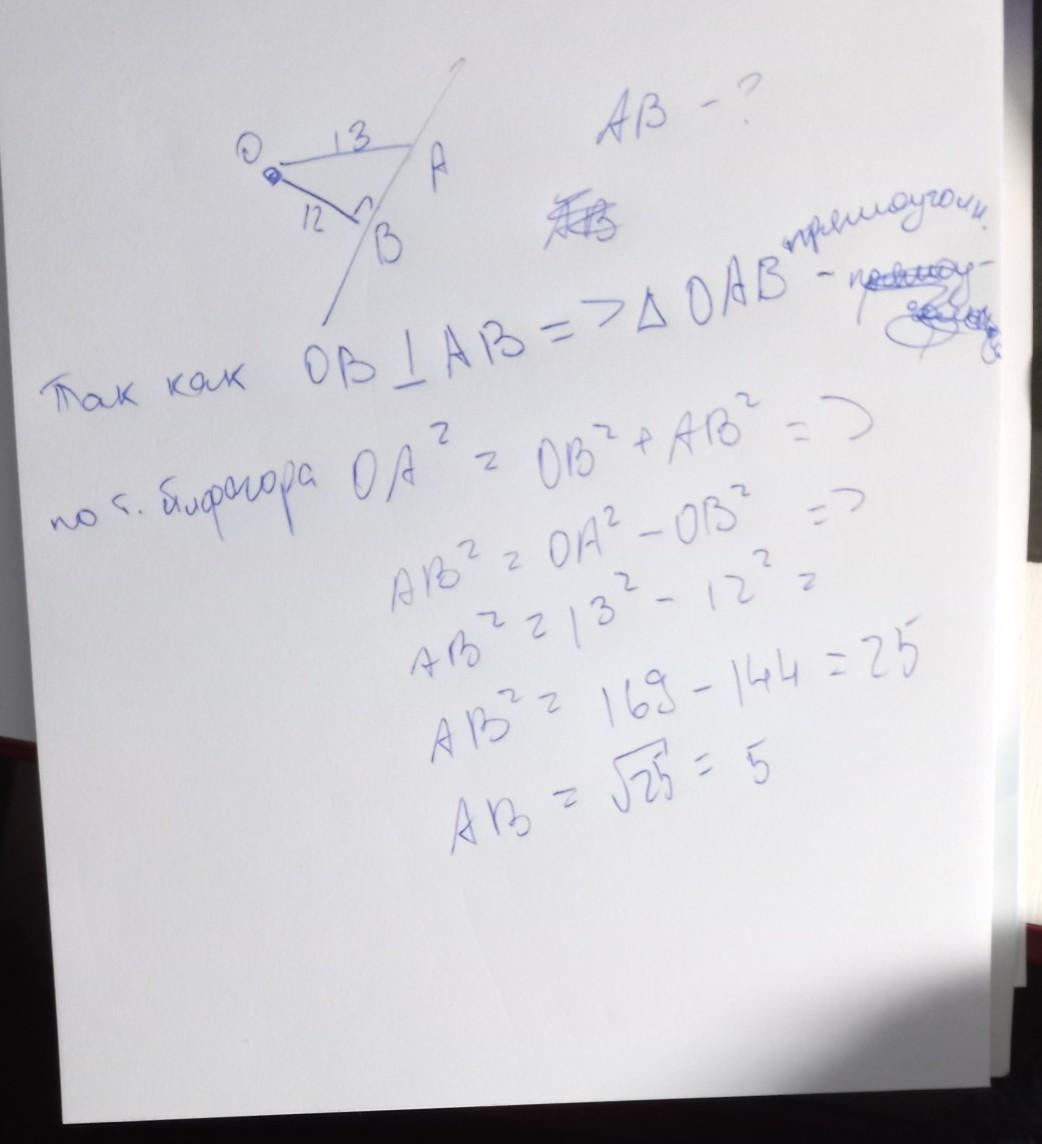 O
13
A
12
B
AB - ?
Так как OB ⊥ AB => Δ OAB - прямоугольн.
по т. Пифагора OA² = OB² + AB² =>
AB² = OA² - OB² =>
AB² = 13² - 12² =
AB² = 169 - 144 = 25
AB = √25 = 5